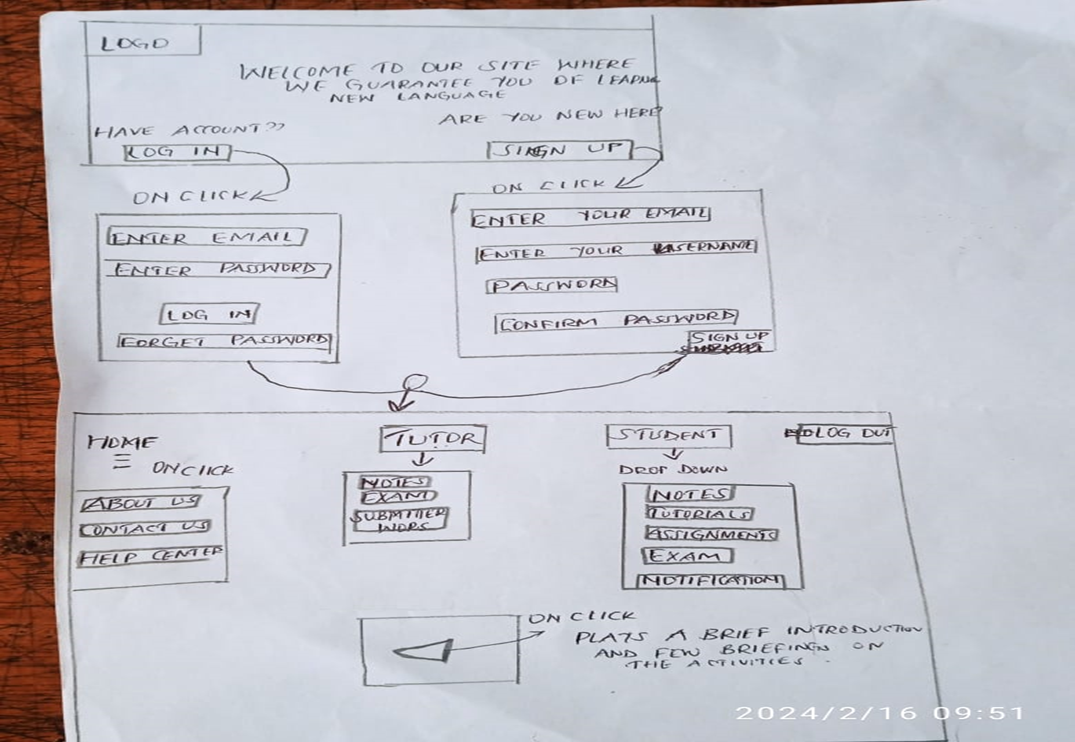 LOGO
WELCOME TO OUR SITE WHERE
WE GUARANTEE YOU OF LEARN
NEW LANGUAGE
HAVE ACCOUNT??
ARE YOU NEW HERE?
LOG IN
SIGN UP
ON CLICK
ON CLICK
ENTER EMAIL
ENTER PASSWORD
LOG IN
FORGET PASSWORD
ENTER YOUR EMAIL
ENTER YOUR USERNAME
PASSWORD
CONFIRM PASSWORD
SIGN UP
HOME
TUTOR
STUDENT
LOG OUT
ON CLICK
ABOUT US
CONTACT US
HELP CENTER
NOTES
EXAM
SUBMITTED
WORS
DROP DOWN
NOTES
TUTORIALS
ASSIGNMENTS
EXAM
NOTIFICATION
ON CLICK
PLAYS A BRIEF INTRODUCTION
AND FEW BRIEFINGS ON
THE ACTIVITIES.
2024/2/16 09:51